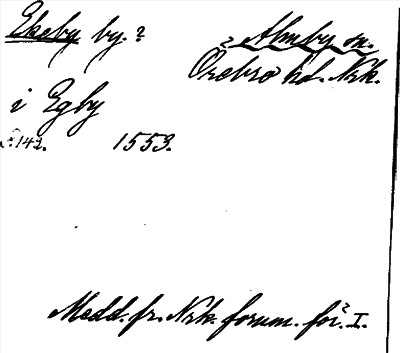 Ekeby by. ?
? Almby sn.
Örebro hd. Nrk.
i Egby
s. 142. 1553.
Medd. fr. Nrk. fornm. för. I.